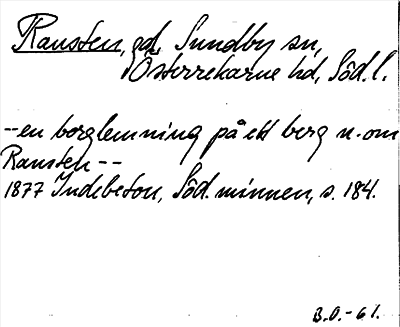 Ransten, gd, Sundby sn,
Österrekarne hd, Söd. l.
--en borglemning på ett berg n. om
Ransten--
1877 Indebetou, Söd. minnen, s. 184.
B.O.-61.